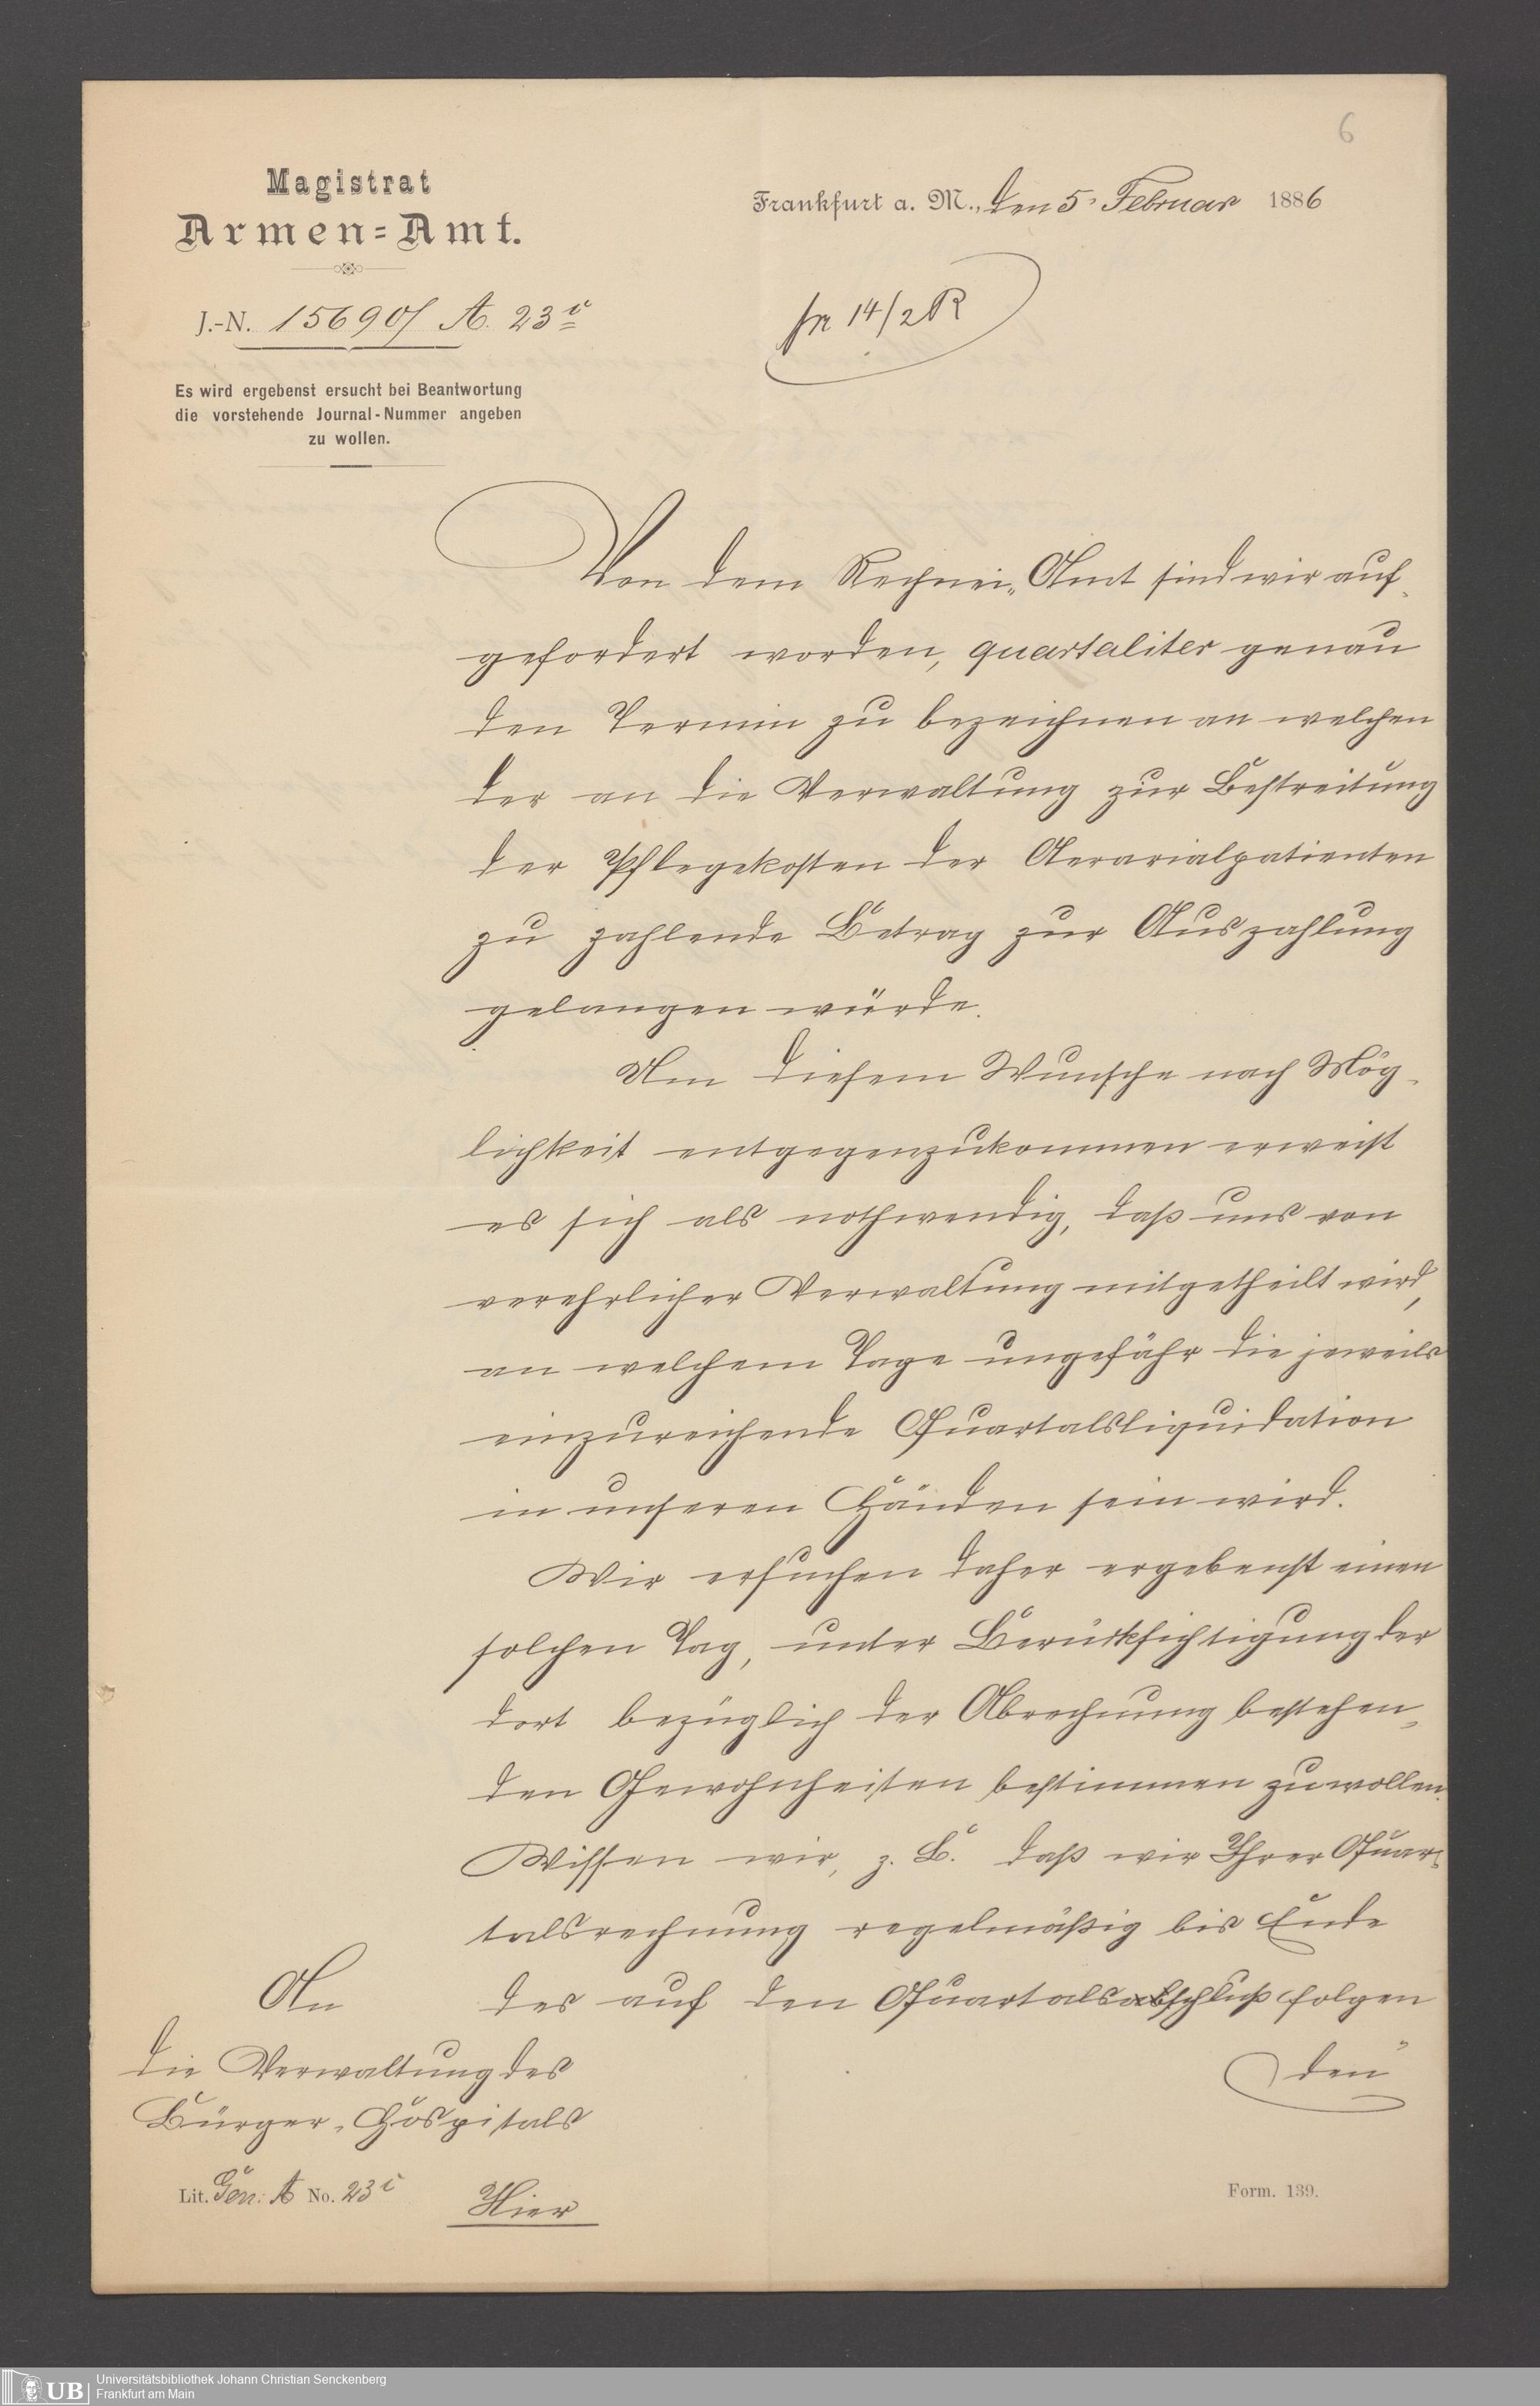 6
Magistrat
Armen=Amt.
Frankfurt a. M., den 5. Februar 1886
J.-N. 15690/ A. 23 c
pr 14/2 R
Es wird ergebenst ersucht bei Beantwortung
die vorstehende Journal-Nummer angeben
zu wollen.
Von dem Rechnei-Amt sind wir auf-
gefordert worden, quartaliter genau
den Termin zu bezeichnen an welchen
der an die Verwaltung zur Bestreitung
der Pflegekosten der Aerarialpatienten
zu zahlende Betrag zur Auszahlung
gelangen würde.
Um diesem Wunsche nach Mög-
lichkeit entgegenzukommen erweist
es sich als nothwendig, daß uns von
verehrlicher Verwaltung mitgetheilt wird,
an welchem Tage ungefähr die jeweils
einzureichende Quartalsliquidation
in unseren Händen sein wird.
Wir ersuchen daher ergebenst einen
solchen Tag, unter Berücksichtigung der
dort bezüglich der Abrechnung bestehen-
den Gewohnheiten bestimmen zu wollen.
Wissen wir, z. B. daß wir Ihrer Quar-
talsrechnung regelmäßig bis Ende
des auf den Quartalsabschluß folgen
den
An
die Verwaltung des
Bürger-Hospitals
Hier
Lit. Gen: A No. 23 c
Form. 139.
UB
Universitätsbibliothek Johann Christian Senckenberg
Frankfurt am Main